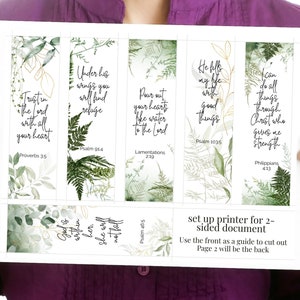 Trust in
the Lord
with all
your heart
Proverbs 3:5
Under his
wings you
will find
refuge
Psalm 91:4
Pour out
your hearts
like water
to the Lord
Lamentations
2:19
He fills
my life
with
good
things
Psalm 103:5
I can
do all
things
through
Christ who
gives me
strength
Philippians
4:13
God is
within
her,
she will
not fall
Psalm 46:5
set up printer for 2-
sided document
Use the front as a guide to cut out
Page 2 will be the back